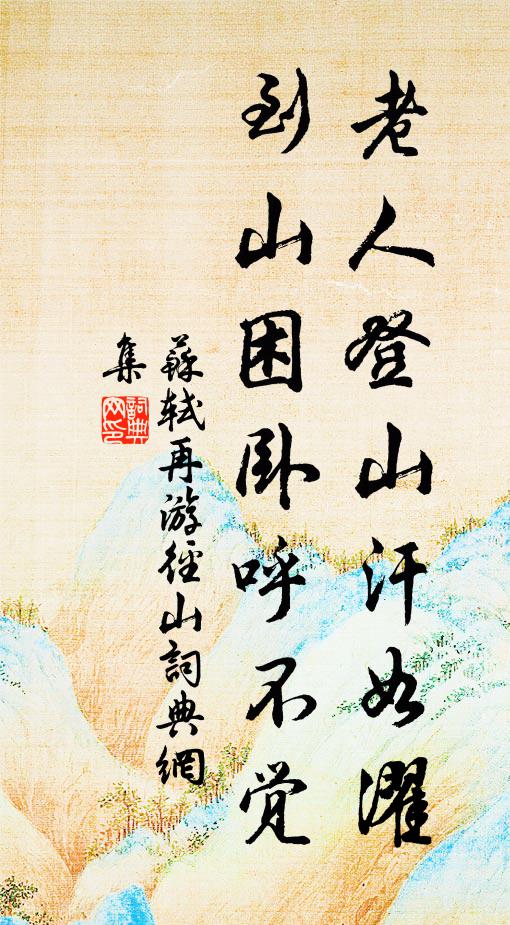 老人登山汗如濯
到山困卧呼不觉
蘇軾再游徑山詞典網
集
詞典網印